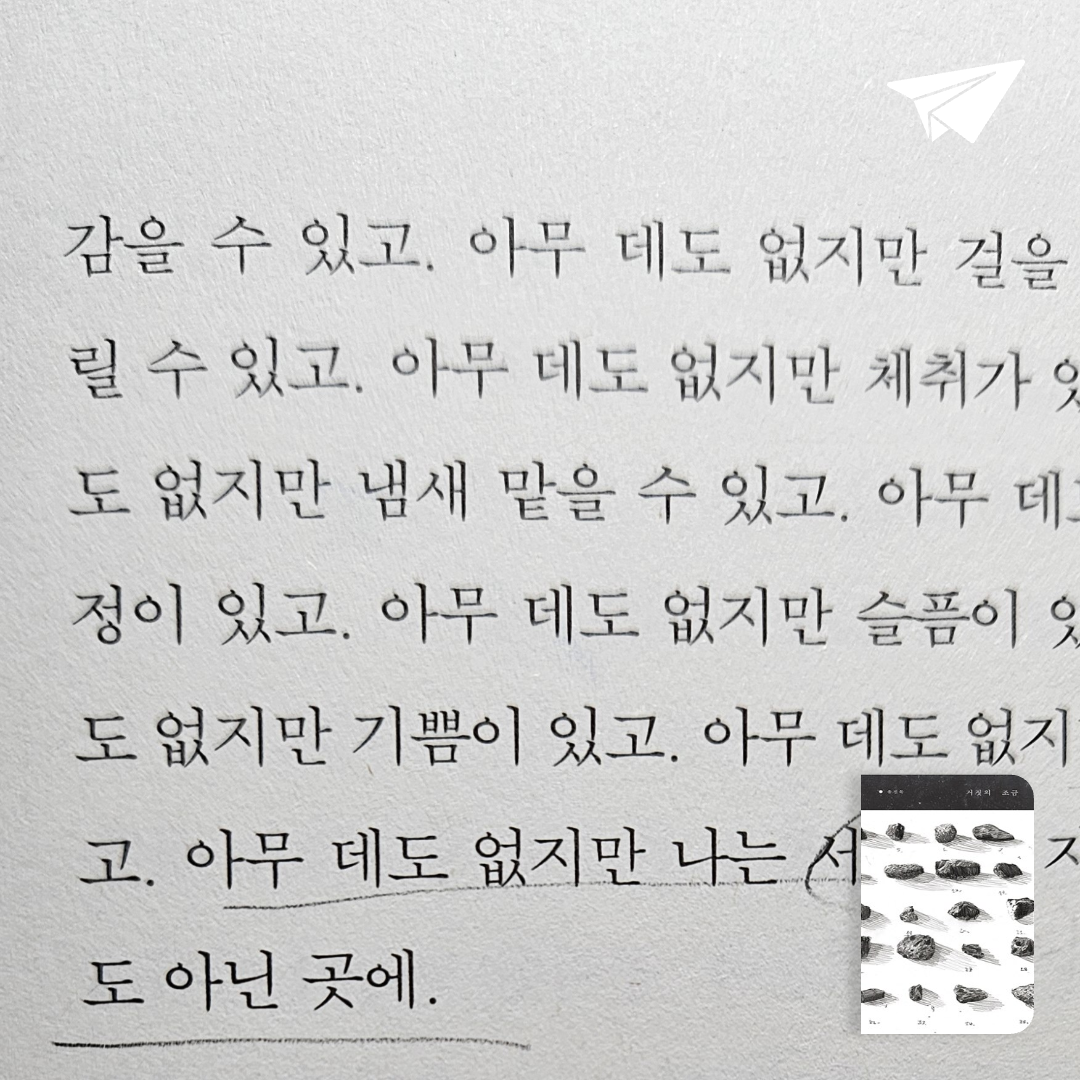 감을 수 있고. 아무 데도 없지만 걸을
릴 수 있고. 아무 데도 없지만 체취가
도 없지만 냄새 맡을 수 있고. 아무 데
정이 있고. 아무 데도 없지만 슬픔이
도 없지만 기쁨이 있고. 아무 데도 없지
고. 아무 데도 없지만 나는 서
도 아닌 곳에.
거짓의 조금